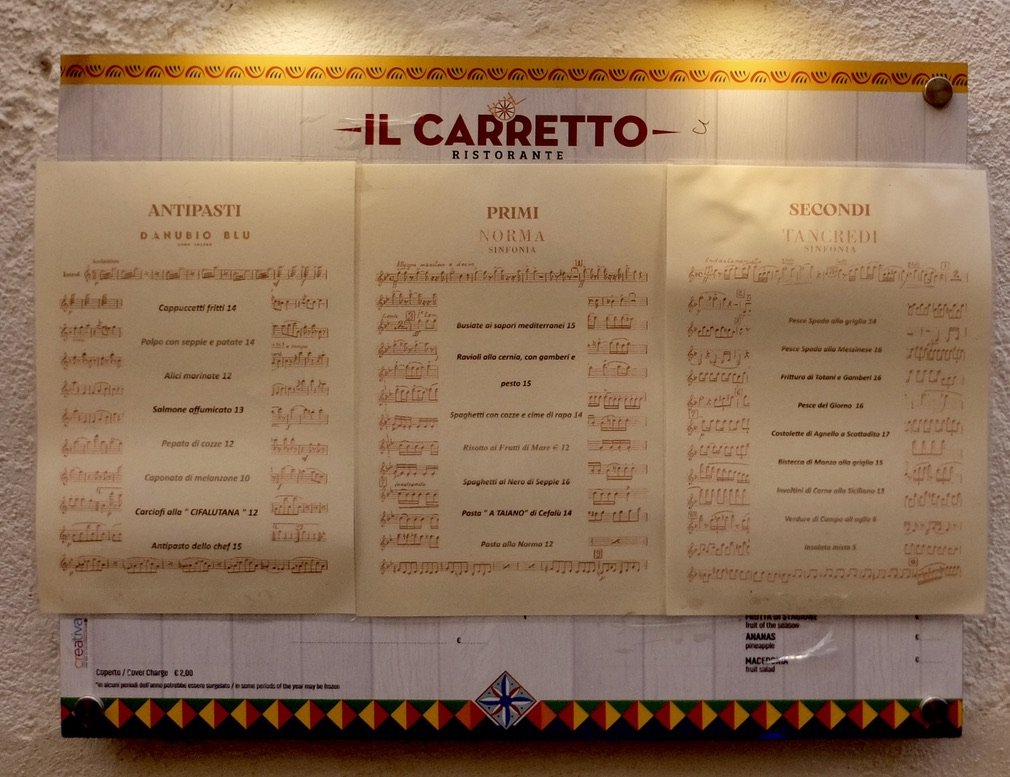 IL CARRETTO
RISTORANTE
ANTIPASTI
DANUBIO BLU
Cappuccetti fritti 14
Polpo con seppie e patate 14
Alici marinate 12
Salmone affumicato 13
Pepata di cozze 12
Caponata di melanzane 10
Carciofi alla " CIFALUTANA " 12
Antipasto dello chef 15
PRIMI
NORMA
SINFONIA
Allegro maestoso e deciso
Busiate ai sapori mediterranei 15
Ravioli alla cernia, con gamberi e
pesto 15
Spaghetti con cozze e cime di rapa 14
Risotto ai Frutti di Mare € 12
Spaghetti al Nero di Seppie 16
Pasta " A TAIANO" di Cefalù 14
Pasta alla Norma 12
SECONDI
TANCREDI
SINFONIA
Pesce Spada alla griglia 14
Pesce Spada alla Messinese 16
Frittura di Totani e Gamberi 16
Pesce del Giorno 16
Costolette di Agnello a Scottadito 17
Bistecca di Manzo alla griglia 15
Involtini di Carne alla Siciliana 13
Verdure di Campo all'aglio 6
Insalata mista 5
creativa
€
Coperto / Cover Charge € 2,00
*in alcuni periodi dell'anno potrebbe essere surgelato / in some periods of the year may be frozen
FRUTTA DI STAGIONE €
fruit of the season
ANANAS €
pineapple
MACEDONIA €
fruit salad